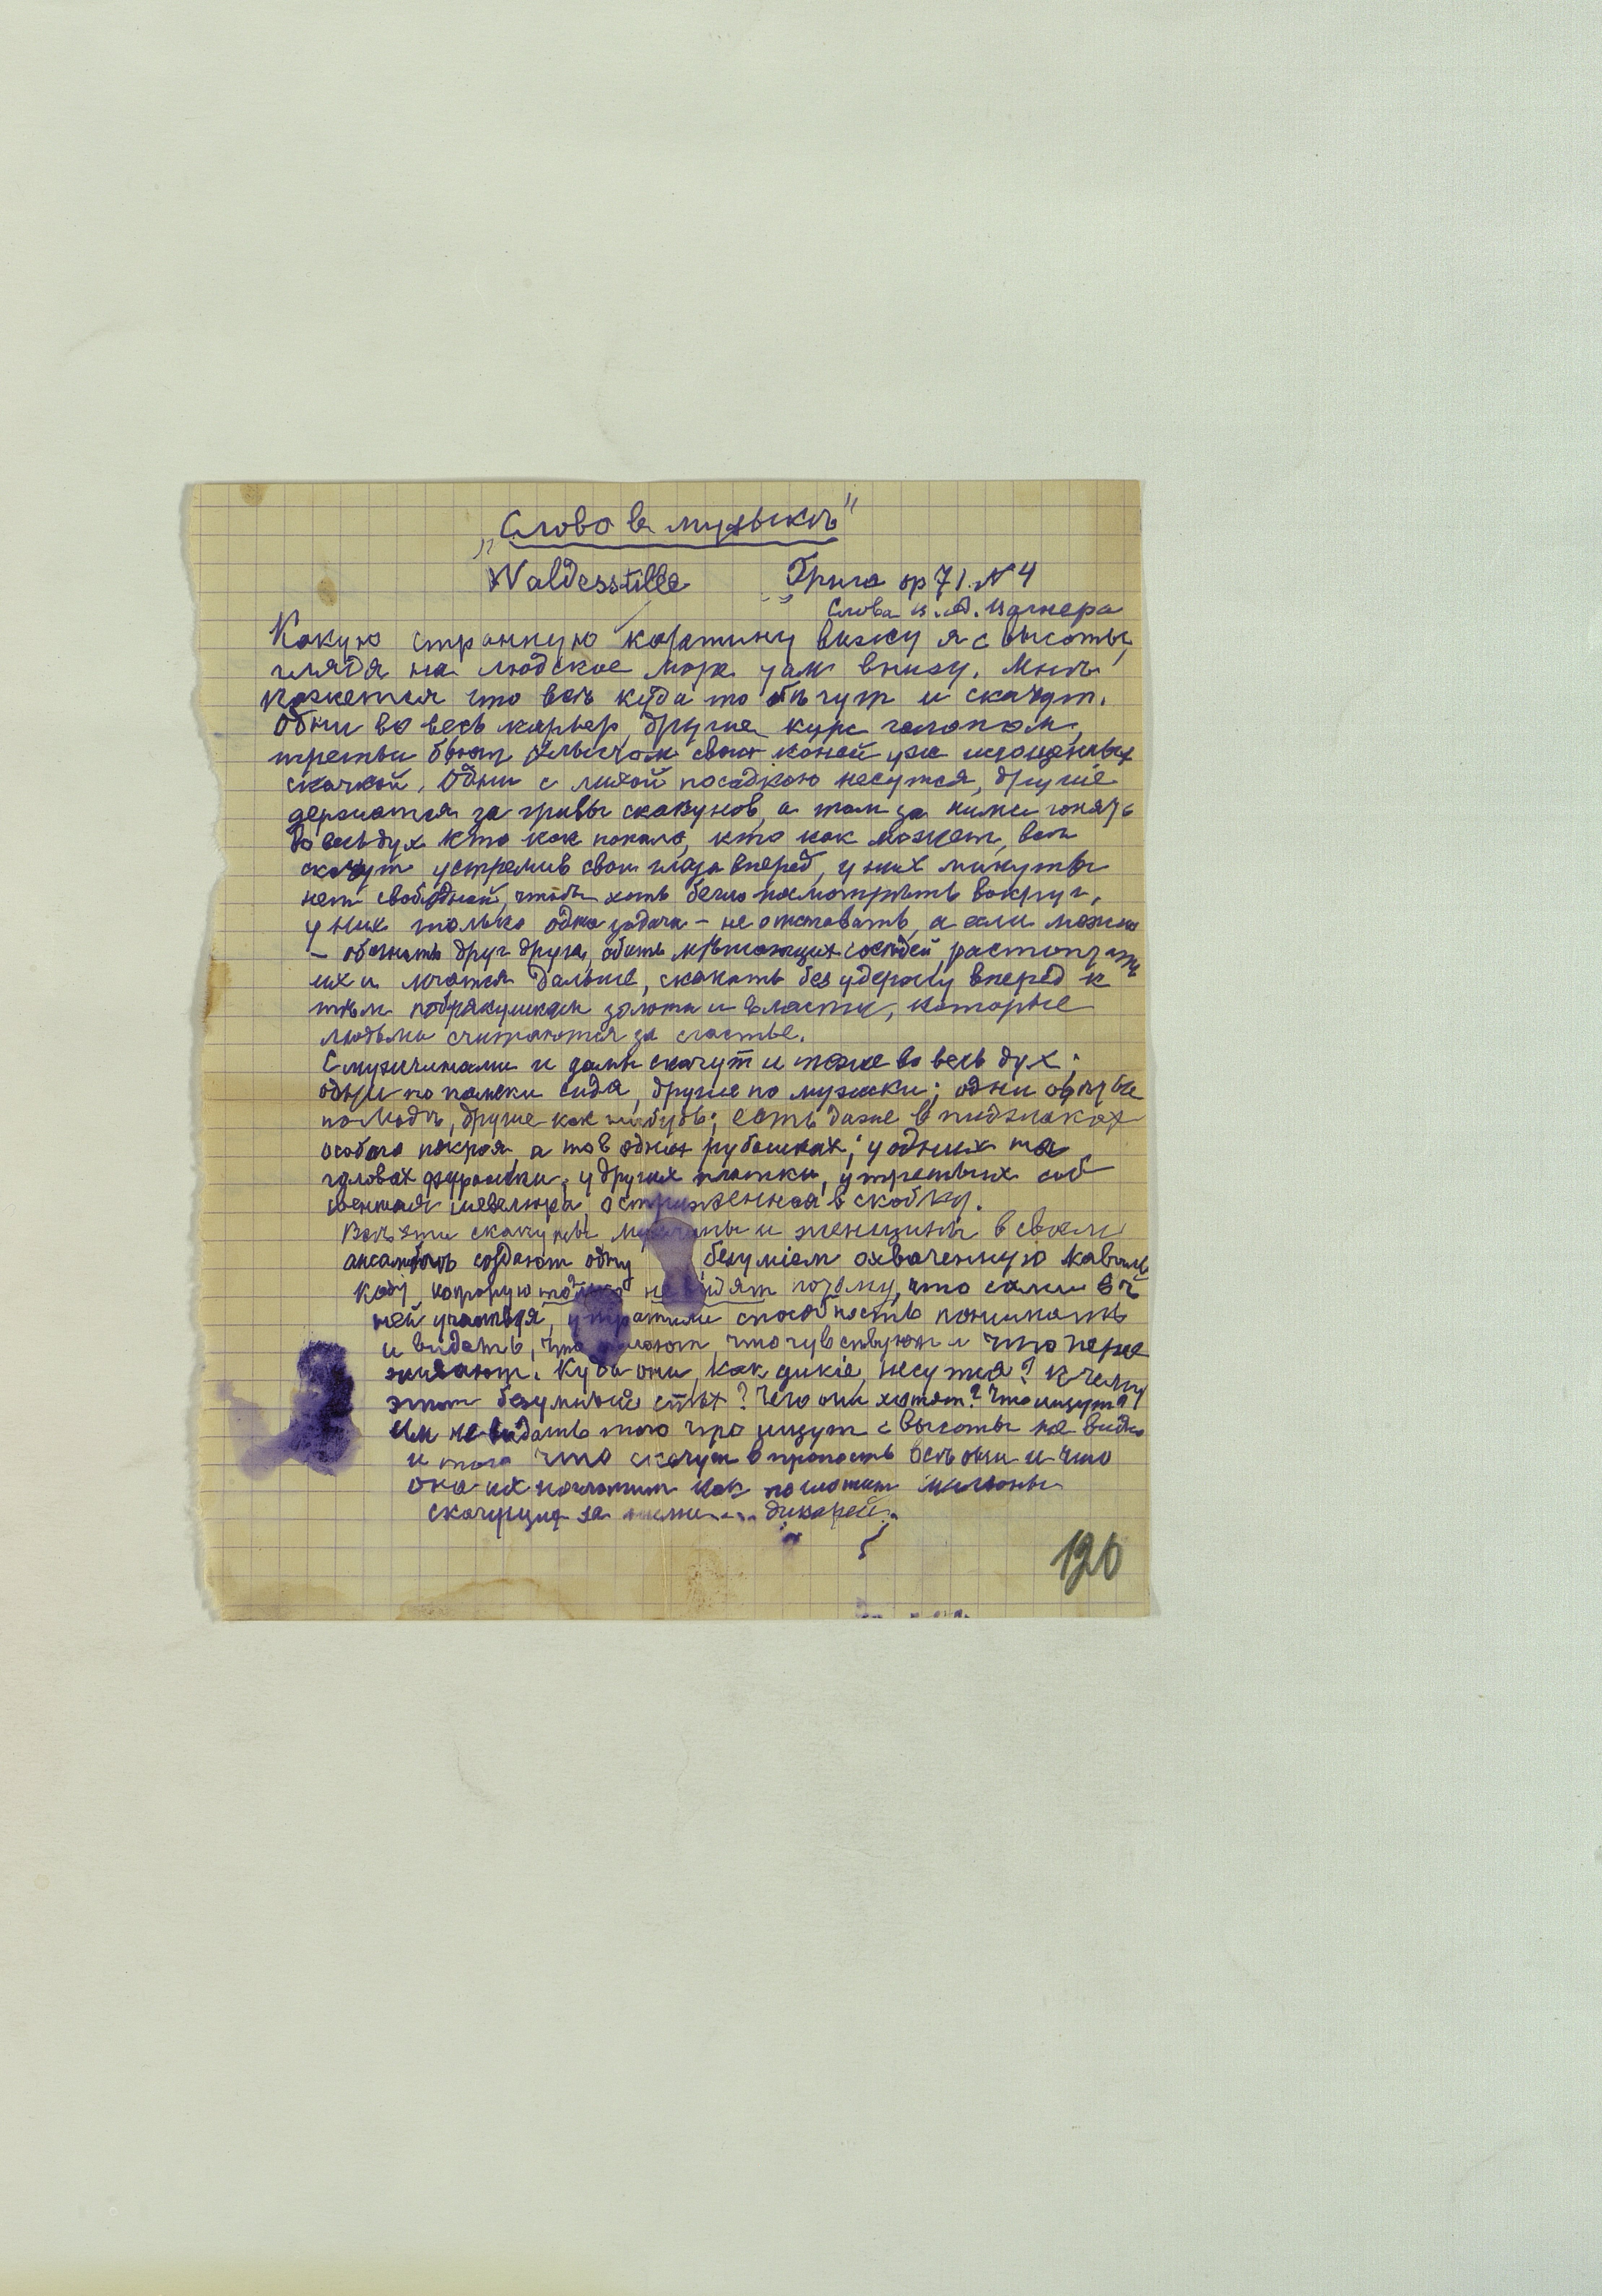 „Слово в музыкѣ"
Waldesstille Грига op 71. N 4
Слова И. А. Вагнера
Какую странную картину вижу я с высоты,
глядя на людское море там внизу. Мнѣ
кажется что всѣ куда то бѣгут и скачут.
Одни во весь карьер, другие курс галопом,
третьи бьют хлыстом своих коней уж истощенных
скачкой. Одни с лихой посадкою несутся, другiе
держатся за гривы скакунов, а там за ними гонять
во весь дух кто как попало, кто как может, всѣ
скачут устремив свои глаза вперед, у них минуты
нет свободной, чтобы хоть бегло посмотрѣть вокруг,
у них только одна задача – не отставать, а если можно
– обогнать друг друга, сбить мѣшающих сосѣдей, растоптать
их и мчаться дальше, скакать без удержу вперед к
тѣм побрякушкам золота и власти, которые
людьми считаются за счастье.
С мужчинами и дамы скачут и тоже во весь дух;
одни по дамски сидя, другие по мужски; одни одѣты
по модѣ, другие как нибудь; есть даже в пиджаках
особого покроя, а то в одних рубашках; у одних на
головах фуражки, у других платки, у третьих соб
ственная шевелюра, остриженная в скобку.
Всѣ эти скакуны мужчины и женщины в своем
ансамблѣ создают одну безумiем охваченную кавалька
ду, которую не видят потому, что сами в
ней участвуя, утратили способность понимать
и видать, что дѣлают, что чувствуют и что пере
живают. Куда они, как дикiе, несутся? К чему
этот безумный спѣх? Чего они хотят? Что ищут?
Им не видать того что ищут с высоты не видно
и того что скачут в пропасть всѣ они и что
она их поглотит как поглотит мильоны
скачущих за ними... дикарей.
120